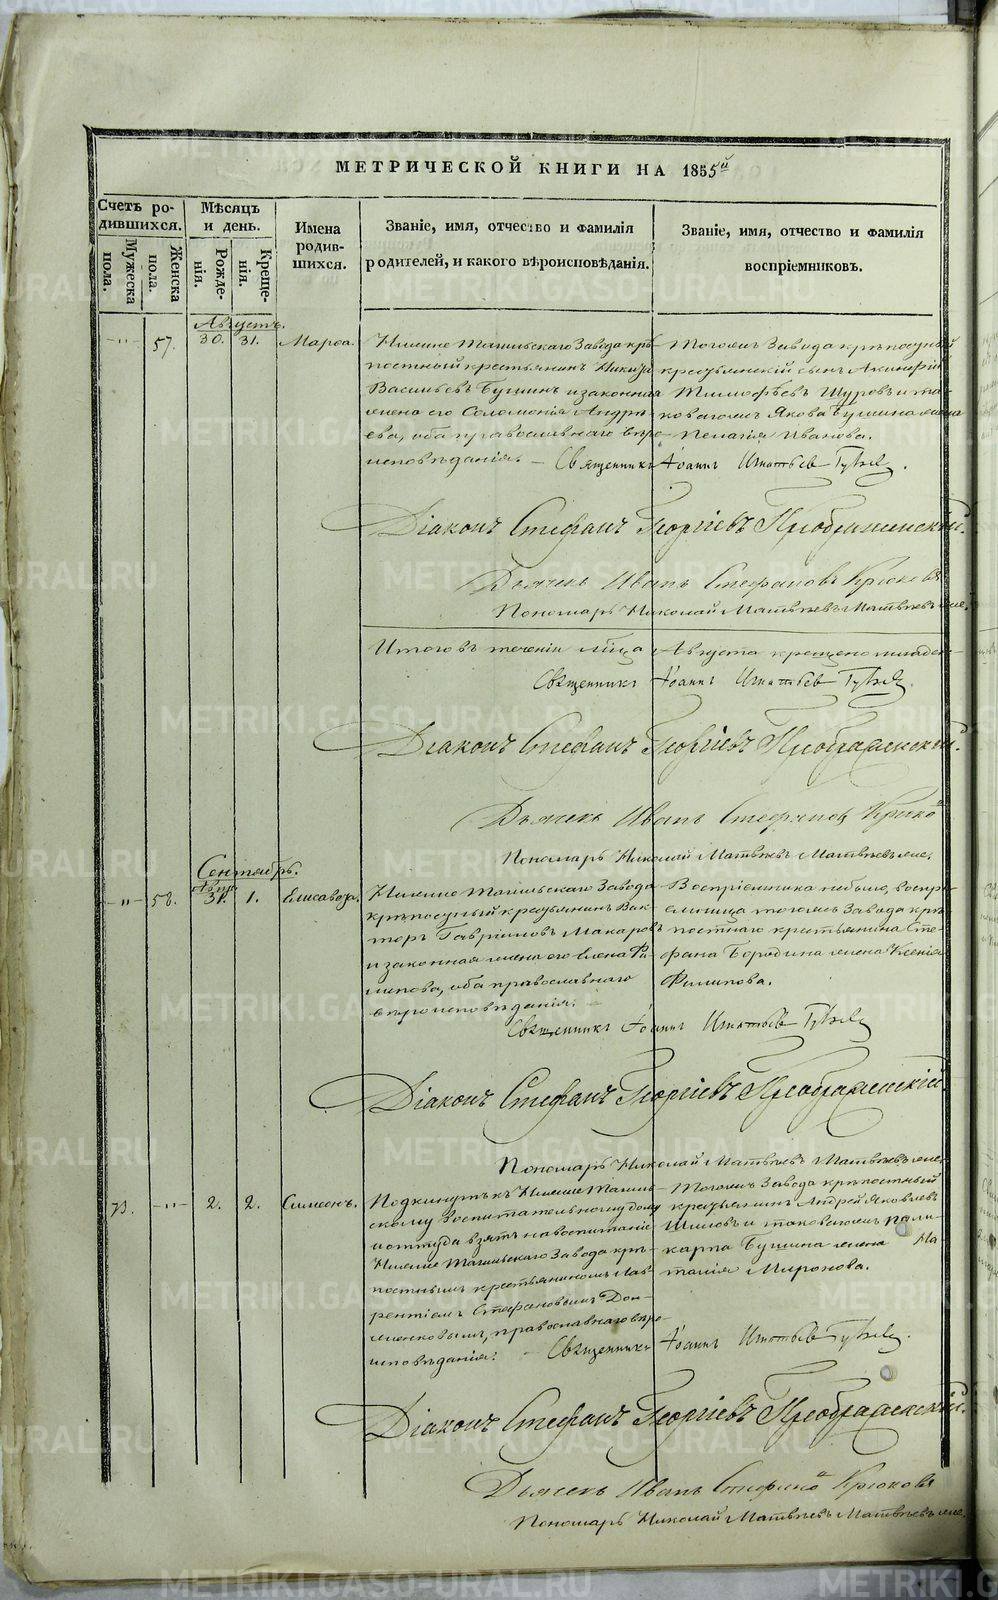 МЕТРИЧЕСКОЙ КНИГИ НА 1855й
Счетъ ро-
дившихся.
Мужеска
пола.
Женска
пола.
Мѣсяцъ
и день.
Рожде-
нія.
Креще-
нія.
Имена
родив-
шихся.
Званіе, имя, отчество и фамилія
родителей, и какого вѣроисповѣданія.
Званіе, имя, отчество и фамилія
воспріемниковъ.
Августъ.
-"- 57. 30. 31. Марѳа.
Нижне Тагильскаго Завода крѣ-
постный крестьянинъ
Васильевъ Бушинъ и законная
жена его Соломонія Андре-
ева, оба православнаго вѣро-
исповѣданія. –
Тогожъ Завода крѣпостный
крестьянскій сынъ
Тимофѣевъ Щуровъ и та-
коваяжъ Якова Бушина жена
Пелагія Иванова.
Священникъ Іоаннъ Игнатьевъ
Діаконъ Стефанъ Георгіевъ Преображенскій.
Дьячекъ Иванъ Стефановъ Крюковъ
Пономарь Николай Матвѣевъ
Итого въ теченіи мѣсяца Августа крещено младен-
Священникъ Іоаннъ Игнатьевъ
Діаконъ Стефанъ Георгіевъ Преображенскій.
Дьячекъ Иванъ Стефановъ
Пономарь Николай Матвѣевъ
Сентябрь.
Авгу.
-"- 58. 31. 1. Елисавета.
Нижне Тагильскаго Завода
крѣпостный крестьянинъ Вик-
торъ Гавріиловъ Макаровъ
и законная жена его Елена Фи-
липова, оба православнаго
вѣроисповѣданія.
Воспріемника небыло, воспрі-
емница тогожъ Завода крѣ-
постнаго крестьянина Сте-
фана Бородина жена Ксенія
Филипова.
Священникъ Іоаннъ Игнатьевъ
Діаконъ Стефанъ Георгіевъ Преображенскій.
Пономарь Николай Матвѣевъ
73. -"- 2. 2. Симеонъ.
Подкинутъ къ Нижне Тагиль-
скому Воспитательному дому
и оттуда взятъ на воспитаніе
Нижне Тагильскаго Завода крѣ-
постнымъ крестьяниномъ Лав-
рентіемъ Стефановымъ
православнаго вѣро-
исповѣданія. –
Тогожъ Завода крѣпостный
крестьянинъ Андрей Яковлевъ
Шиловъ и таковагожъ Поли-
карпа Бушина жена На-
талія Миронова.
Священникъ Іоаннъ Игнатьевъ
Діаконъ Стефанъ Георгіевъ Преображенскій.
Дьячекъ Иванъ Крюковъ
Пономарь Николай Матвѣевъ
METRIKI.GASO-URAL.RU